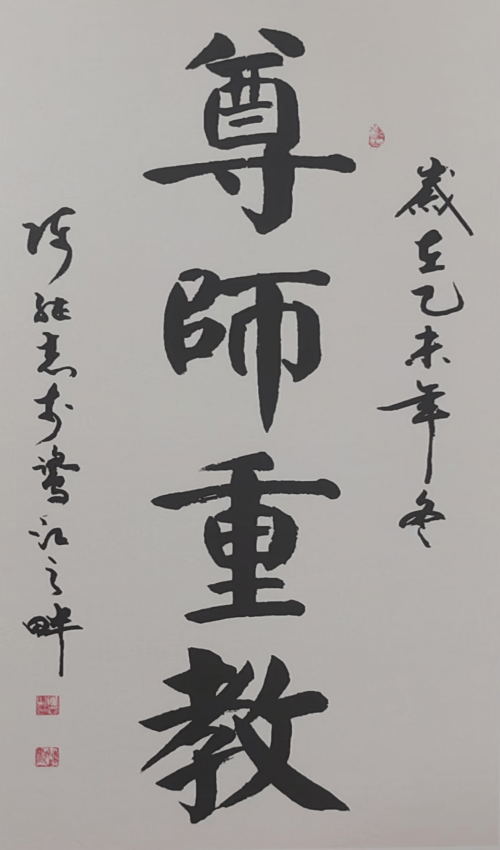 歲在乙未年冬
尊師重教
志於鷺江之畔